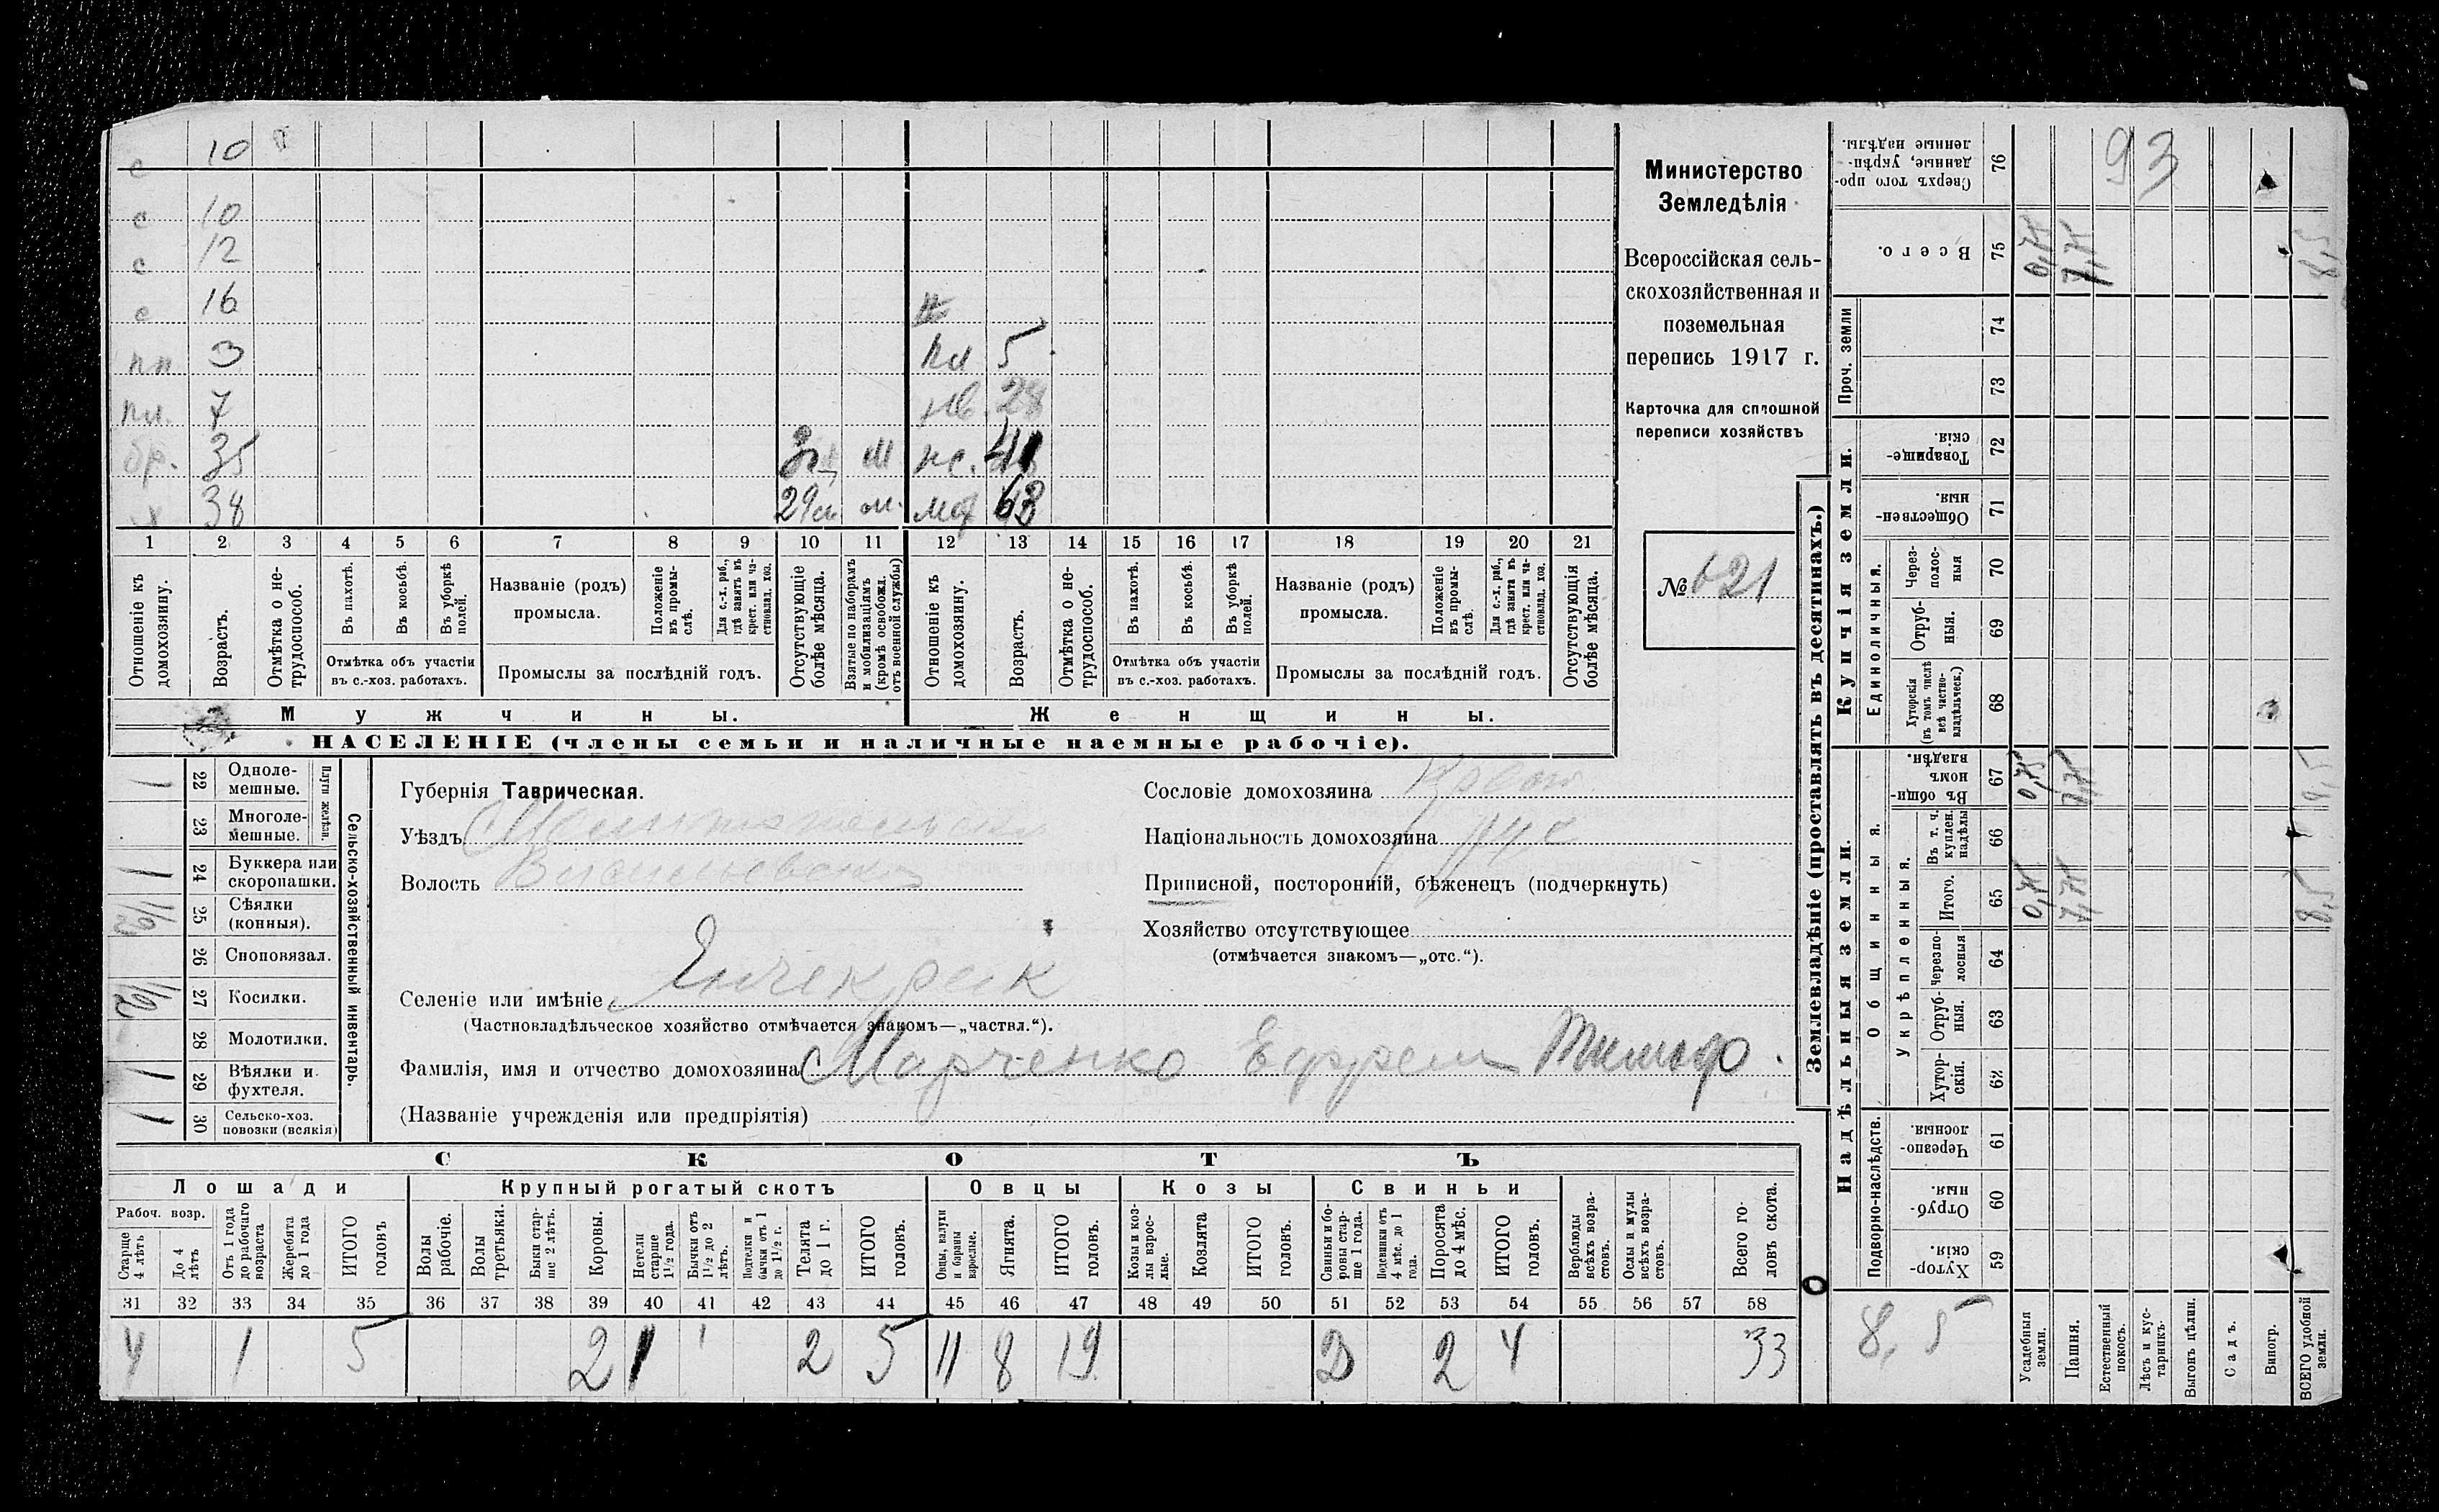 с 10
с 10
с 12
с 16
пп 3
пл 5
пл. 7
нв. 28
бр. 35 м нс. 41
х 38 м. мат 63
1 2 3 4 5 6 7 8 9 10 11 12 13 14 15 16 17 18 19 20 21
Отношеніе къ домохозяину.
Возрастъ.
Отмѣтка о нетрудоспособ.
Въ пахотѣ.
Въ косьбѣ.
Въ уборкѣ полей.
Отмѣтка объ участіи въ с.-хоз. работахъ.
Названіе (родъ) промысла.
Положеніе въ промыслѣ.
Для с.-х. раб., гдѣ занятъ въ крест. или частновлад. хоз.
Промыслы за послѣдній годъ.
Отсутствующіе болѣе мѣсяца.
Взятые по наборамъ и мобилизаціямъ (кромѣ освобожд. отъ военной службы)
Отношеніе къ домохозяину.
Возрастъ.
Отмѣтка о нетрудоспособ.
Въ пахотѣ.
Въ косьбѣ.
Въ уборкѣ полей.
Отмѣтка объ участіи въ с.-хоз. работахъ.
Названіе (родъ) промысла.
Положеніе въ промыслѣ.
Для с.-х. раб., гдѣ занята въ крест. или частновлад. хоз.
Промыслы за послѣдній годъ.
Отсутствующія болѣе мѣсяца.
Мужчины. Женщины.
НАСЕЛЕНІЕ (члены семьи и наличные наемные рабочіе).
Министерство
Земледѣлія
Всероссійская сель-
скохозяйственная и
поземельная
перепись 1917 г.
Карточка для сплошной
переписи хозяйствъ
№ 621
Сельско-хозяйственный инвентарь.
Плуги желѣзн.
1 22 Одноле-
мешные.
23 Многоле-
мешные.
1 24 Буккера или
скоропашки.
25 Сѣялки
(конныя).
26 Сноповязал.
27 Косилки.
28 Молотилки.
1 29 Вѣялки и
фухтеля.
1 30 Сельско-хоз.
повозки (всякія)
Губернія Таврическая.
Уѣздъ Мелитопольск
Волость
Селеніе или имѣніе Янчекрак
(Частновладѣльческое хозяйство отмѣчается знакомъ—„частвл.“).
Фамилія, имя и отчество домохозяина Марченко Ефрем Тимоф.
(Названіе учрежденія или предпріятія)
Сословіе домохозяина
Національность домохозяина рус
Приписной, посторонній, бѣженецъ (подчеркнуть)
Хозяйство отсутствующее
(отмѣчается знакомъ—„отс.“).
СКОТЪ
Лошади Крупный рогатый скотъ Овцы Козы Свиньи
Рабоч. возр.
Старше 4 лѣтъ
До 4 лѣтъ
Отъ 1 года до рабочаго возраста
Жеребята до 1 года
ИТОГО головъ
Волы рабочіе.
Волы третьяки.
Быки старше 2 лѣтъ.
Коровы.
Нетели старше 1½ года.
Бычки отъ 1½ до 2 лѣтъ.
Подтелки и бычки отъ 1 до 1½ г.
Телята до 1 г.
ИТОГО головъ.
Овцы, валухи и бараны взрослые.
Ягнята.
ИТОГО головъ.
Козы и козлы взрослые.
Козлята
ИТОГО головъ.
Свиньи и боровы старше 1 года.
Подсвинки отъ 4 мѣс. до 1 года.
Поросята до 4 мѣс.
ИТОГО головъ.
Верблюды всѣхъ возрастовъ.
Ослы и мулы всѣхъ возрастовъ.
Всего головъ скота.
31 32 33 34 35 36 37 38 39 40 41 42 43 44 45 46 47 48 49 50 51 52 53 54 55 56 57 58
4 1 5 2 1 2 5 11 8 19 2 2 4 33
Землевладѣніе (проставлять въ десятинахъ.)
Надѣльныя земли. Купчія земли.
Подворно-наслѣдств.
Общинныя.
Укрѣпленныя.
Единоличныя.
Проч. земли
59 Хуторскія.
60 Отрубныя.
61 Черезполосныя.
62 Хуторскія.
63 Отрубныя.
64 Черезполосныя
65 Итого. 0,75 7,75 8,5
66 Въ т. ч. куплен. надѣлы
67 Въ общинномъ владѣн. 0,75 7,75 8,5
68 Хуторскія (въ томъ числѣ всѣ частновладѣльческ.)
69 Отрубныя.
70 Черезполосныя
71 Общественныя.
72 Товарищескія.
73
74
75 Всего. 0,75 7,75 8,5
76 Сверхъ того проданные, укрѣпленные надѣлы.
93
8,5
Усадебныя земли.
Пашня.
Естественный покосъ.
Лѣсъ и кустарникъ.
Выгонъ цѣлин.
Садъ.
Виногр.
ВСЕГО удобной земли.